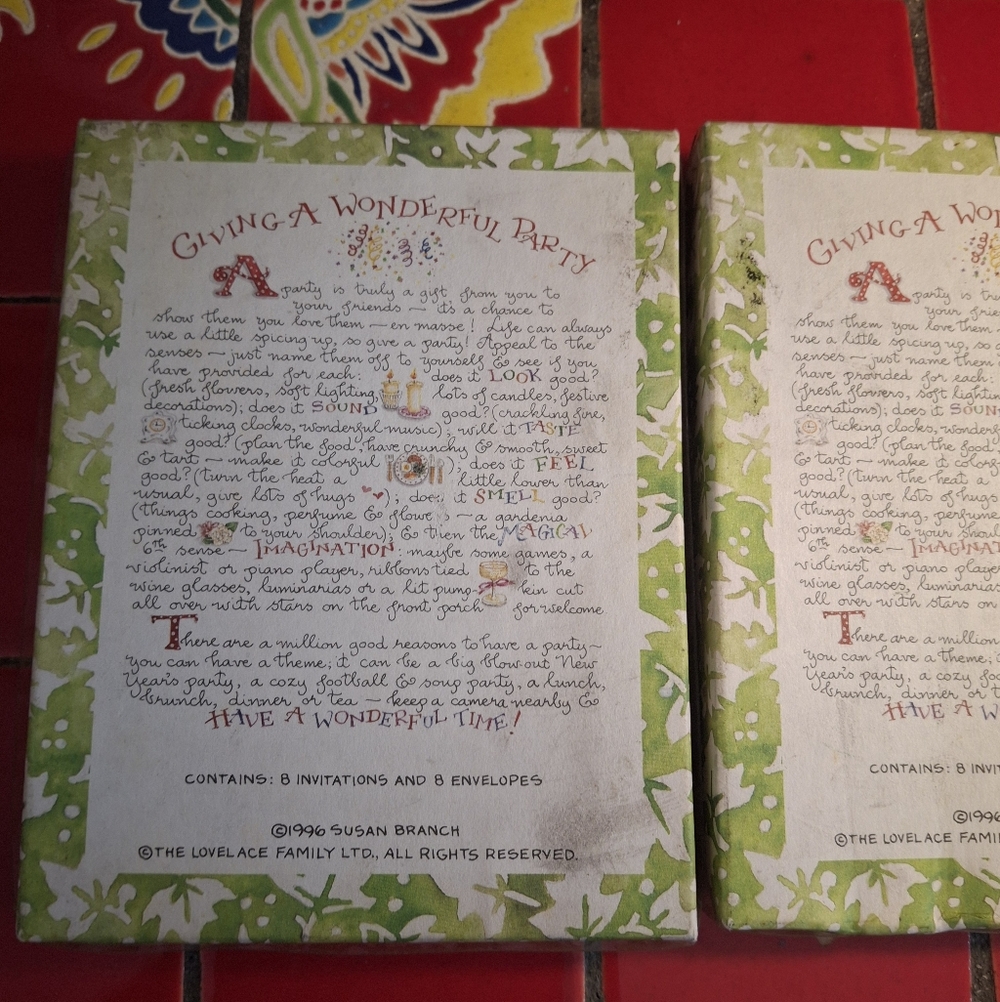 GIVING A WONDERFUL PARTY
A party is truly a gift from you to
your friends — it's a chance to
show them you love them — en masse! Life can always
use a little spicing up, so give a party! Appeal to the
senses — just name them off to yourself & see if you
have provided for each: does it LOOK good?
(fresh flowers, soft lighting, lots of candles, festive
decorations); does it SOUND good? (crackling fire,
ticking clocks, wonderful music); will it TASTE
good? (plan the food, have crunchy & smooth, sweet
& tart — make it colorful); does it FEEL
good? (turn the heat a little lower than
usual, give lots of hugs); does it SMELL good?
(things cooking, perfume & flowers — a gardenia
pinned to your shoulder); & then the MAGICAL
6th sense — IMAGINATION: maybe some games, a
violinist or piano player, ribbons tied to the
wine glasses, luminarias or a lit pump-kin cut
all over with stars on the front porch for welcome.
There are a million good reasons to have a party—
you can have a theme; it can be a big blow-out New
Year's party, a cozy football & soup party, a lunch,
brunch, dinner or tea — keep a camera nearby &
HAVE A WONDERFUL TIME!
CONTAINS: 8 INVITATIONS AND 8 ENVELOPES
©1996 SUSAN BRANCH
©THE LOVELACE FAMILY LTD., ALL RIGHTS RESERVED.
GIVING A WON
A party is tru
your frie
show them you love them
use a little spicing up, so
senses — just name them o
have provided for each:
(fresh flowers, soft lighting,
decorations); does it SOUN
ticking clocks, wonderf
good? (plan the food
& tart — make it color
good? (turn the heat a
usual, give lots of hugs
(things cooking, perfume
pinned to your shou
6th sense — IMAGINAT
violinist or piano playe
wine glasses, luminarias
all over with stars on
There are a million
you can have a theme;
Year's party, a cozy foo
brunch, dinner or t
HAVE A W
CONTAINS: 8 INVI
©1996
©THE LOVELACE FAMI